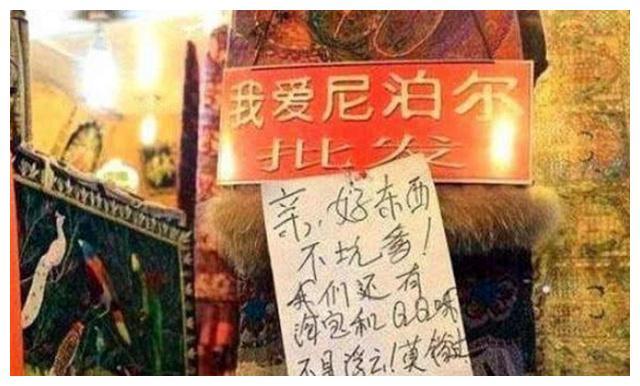 我爱尼泊尔
批发
亲，好东西
不坑爹！
我们还有
淘宝和QQ哦
不是浮云！莫错过